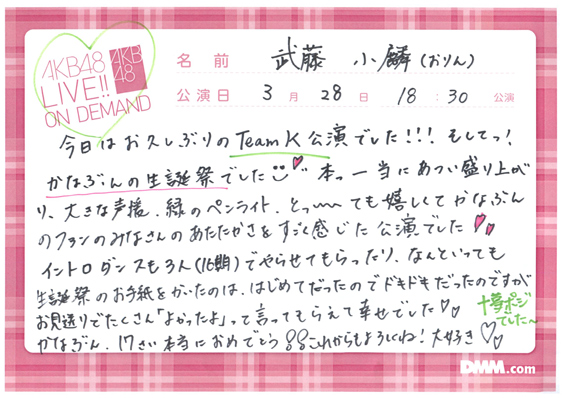 AKB48
LIVE!!
ON DEMAND
AKB
48
名前 武藤 小麟(おりん)
公演日 3月28日 18:30 公演
今日はお久しぶりのTeam K公演でした!!! そしてっ!
かなぶんの生誕祭でした 本っ一当にあつい盛り上が
り、大きな声援、緑のペンライト、とっ〜ても嬉しくてかなぶん
のファンのみなさんのあたたかさをすごく感じた公演でした
イントロダンスも3人(16期)でやらせてもらったり、なんといっても
生誕祭のお手紙をかいたのは、はじめてだったのでドキドキだったのですが
お見送りでたくさん「よかったよ」って言ってもらえて幸せでした♡
かなぶん、17さい本当におめでとう これからもよろしくね!大好き♡
十夢ポジ
でした〜
DMM.com